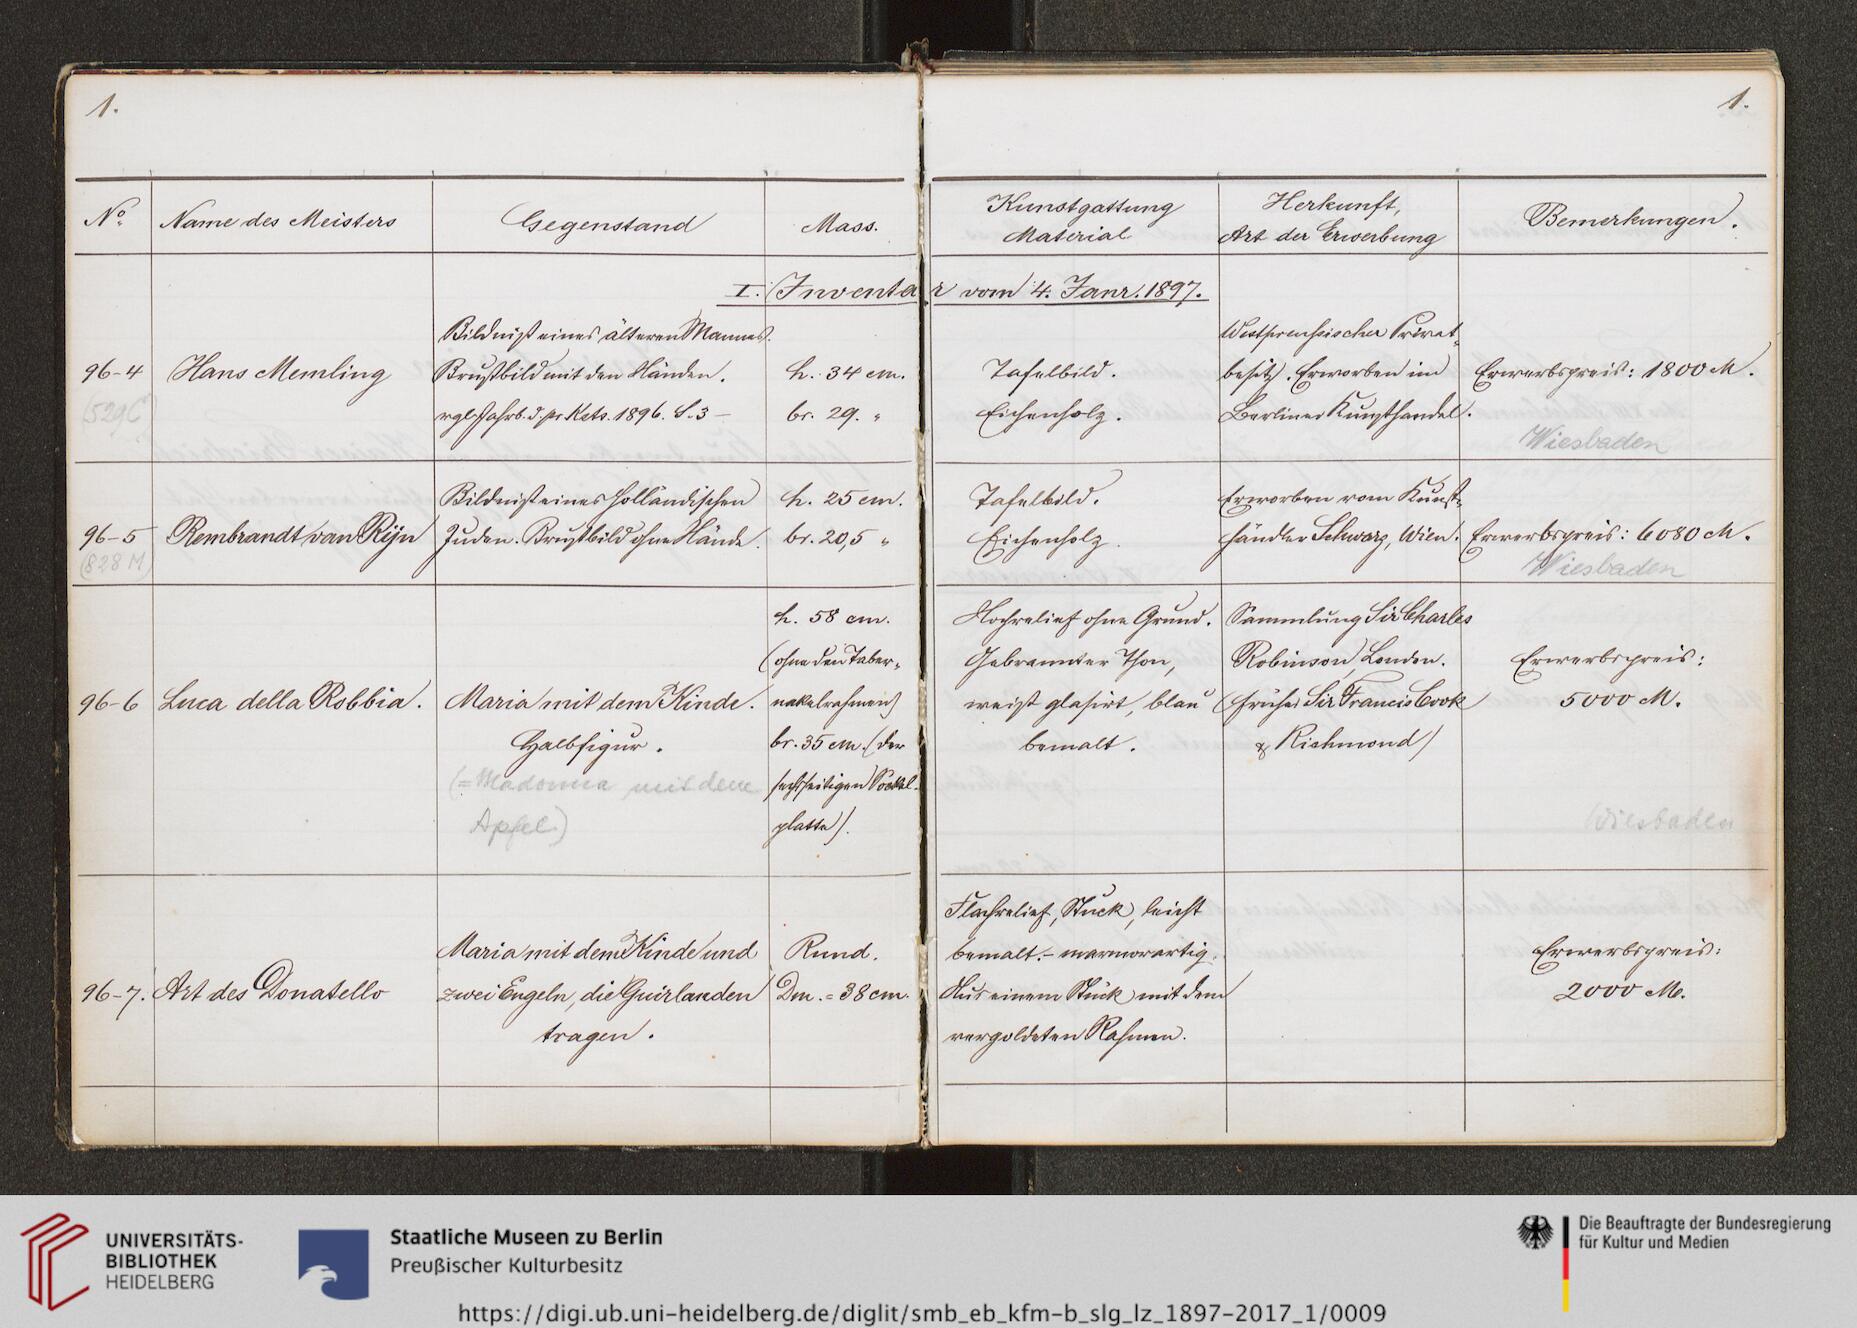 1.
1.
No. Name des Meisters Gegenstand Mass. Kunstgattung Material Herkunft, Art der Erwerbung Bemerkungen.
I. Inventar vom 4. Janr. 1897.
Bildnißt eines älteren Mannes.
96-4 Hans Memling Brustbild mit den Händen. h. 34 cm.
(529C) vgl. Jahrb. d. pr. Ksts. 1896. S. 3 – br. 29. "
Tafelbild.
Eichenholz.
Westpreussischer Privat-
besitz. Erworben im
Berliner Kunsthandel.
Erwerbspreis: 1800 M.
Wiesbaden
Bildnißt eines holländischen h. 25 cm.
96-5 Rembrandt van Rijn Juden. Brustbild ohne Hände. br. 20,5 "
(828 M)
Tafelbild.
Eichenholz.
Erworben vom Kunst-
händler Schwarz, Wien.
Erwerbspreis: 6080 M.
Wiesbaden
96-6 Luca della Robbia. Maria mit dem Kinde.
Halbfigur.
(= Madonna mit dem
Apfel)
h. 58 cm.
(ohne den Taber-
nakelrahmen)
br. 35 cm. (der
sechsseitigen Sockel-
platte).
Hochrelief ohne Grund.
Gebrannter Thon,
weiß glasirt, blau
bemalt.
Sammlung Sir Charles
Robinson, London.
(früher Sir Francis Cook
Richmond)
Erwerbspreis:
5000 M.
Wiesbaden
96-7. Art des Donatello
Maria mit dem Kinde und
zwei Engeln, die Guirlanden
tragen.
Rund.
Dm. = 38 cm.
Flachrelief, Stuck, leicht
bemalt. – marmorartig.
Aus einem Stück mit dem
vergoldeten Rahmen.
Erwerbspreis:
2000 M.
UNIVERSITÄTS-
BIBLIOTHEK
HEIDELBERG
Staatliche Museen zu Berlin
Preußischer Kulturbesitz
Die Beauftragte der Bundesregierung
für Kultur und Medien
https://digi.ub.uni-heidelberg.de/diglit/smb_eb_kfm-b_slg_lz_1897-2017_1/0009